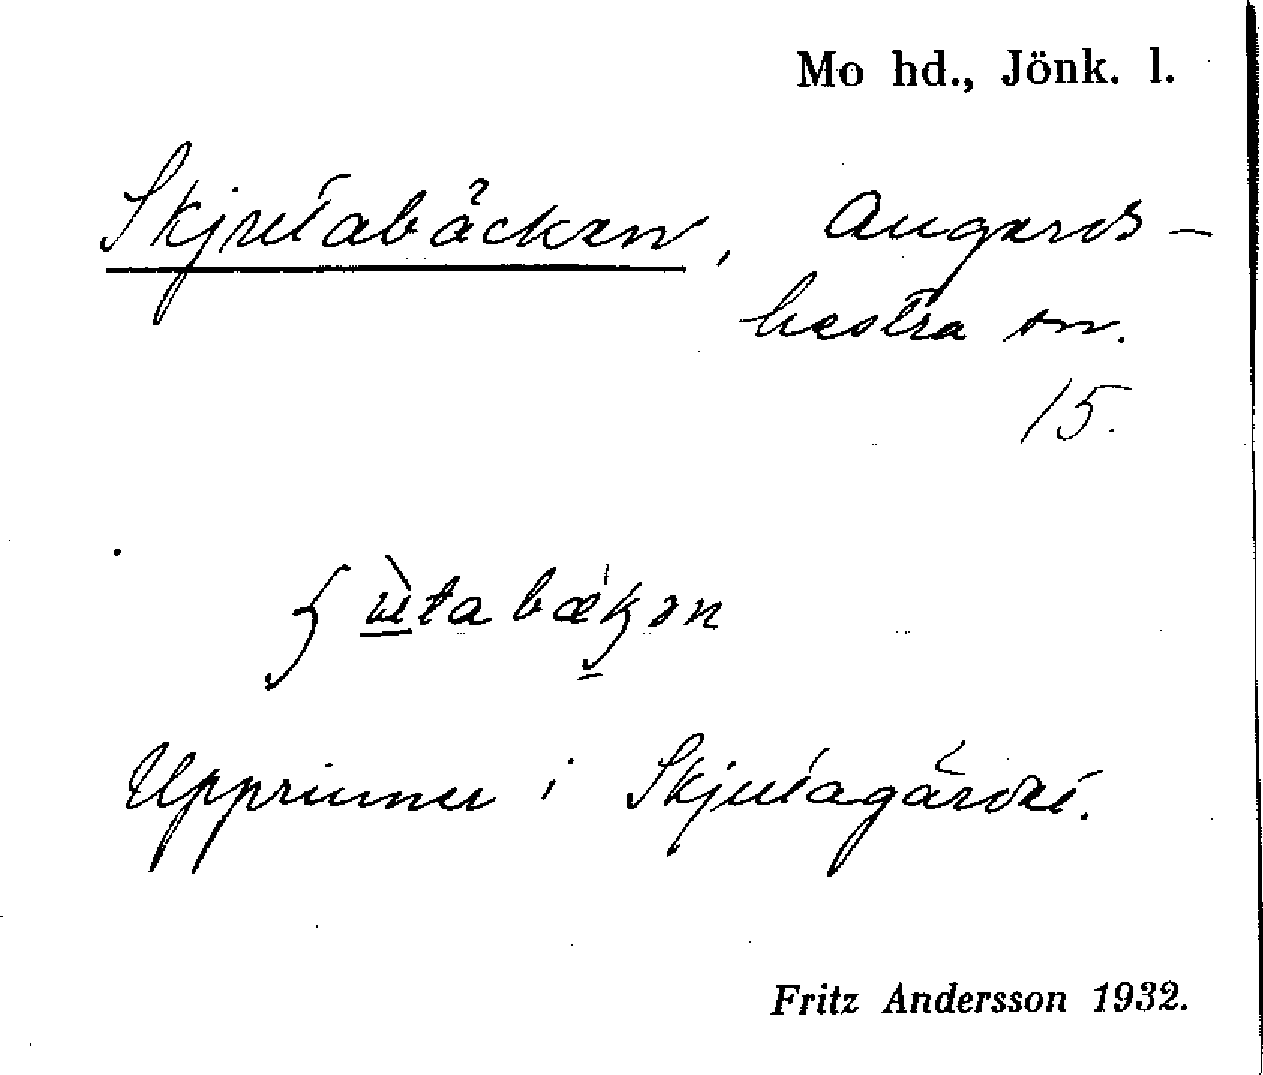 Mo hd., Jönk. l.
Skjutabäcken, Angerds-
hestra sn.
15.
Upprinner i Skjutagärdet.
Fritz Andersson 1932.